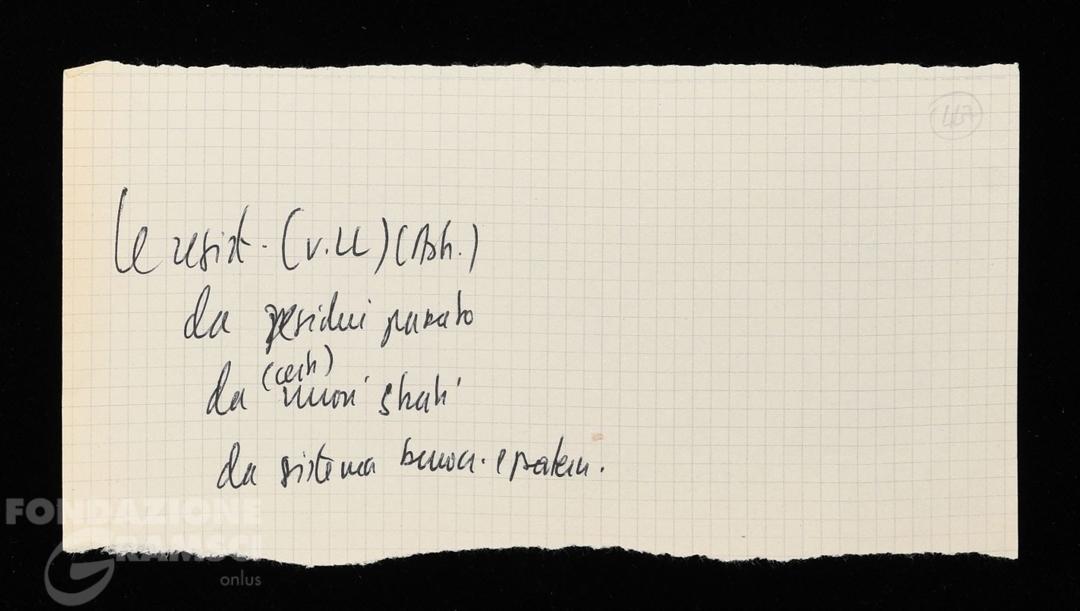 467
Le resist. (v. U) (Bh.)
da residui passato
(certi)
da nuovi strati
da sistema burocr. e patern.
FONDAZIONE
GRAMSCI
onlus